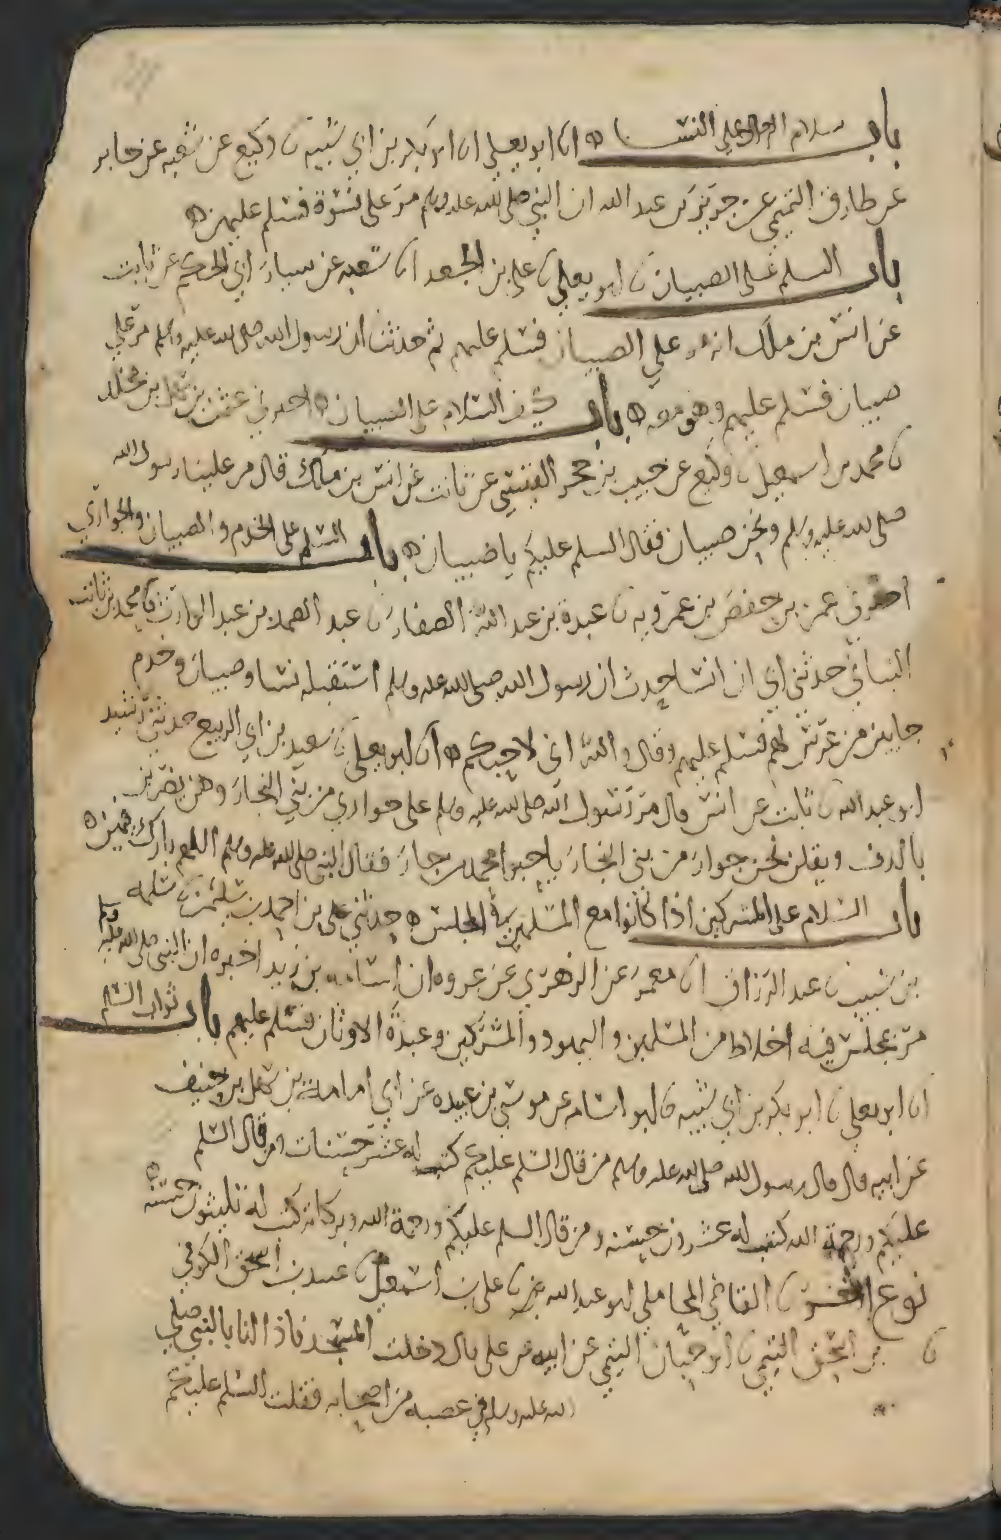 باب سلام الرجال على النساء ه انا ابو يعلى انا ابو بكر بن ابي شيبه نا وكيع عن شعبه عن جابر
عن طارق التميمي عن جرير بن عبد الله ان النبي صلى الله عليه وسلم مر على نسوة فسلم عليهن ه
باب السلم على الصبيان نا ابو يعلى نا علي بن الجعد انا شعبه عن سيار ابي الحكم عن ثابت
عن انس بن ملك انه مر علي الصبيان فسلم عليهم ثم حدثنا ان رسول الله صلى الله عليه وسلم مر علي
صبيان فسلم عليهم وهو معه ه باب كيف السلام على الصبيان ه اخبرني عثمن بن سهل بن مخلد
نا محمد بن اسمعيل نا وكيع عن حبيب بن حجر القيسي عن ثابت عن انس بن مالك قال مر علينا رسول الله
صلى الله عليه وسلم ونحن صبيان فقال السلم عليكم يا صبيان ه باب السلم على الخدم والصبيان والجواري
اخبرني عمر بن حفص بن عمرويه نا عبدة بن عبد الله الصفار نا عبد الصمد بن عبد الوارث نا محمد بن ثابت
البناني حدثني ابي ان انسا حدث ان رسول الله صلى الله عليه وسلم استقبله نسا وصبيان وخدم
جايين من عرس لهم فسلم عليهم وقال والله اني لاحبكم ه انا ابو يعلى نا سعيد بن ابي الربيع حدثني رشيد
ابو عبد الله نا ثابت عن انس قال مر رسول الله صلى الله عليه وسلم على جواري من بني النجار وهن يضربن
بالدف ويقلن نحن جوار من بني النجار يا حبذا محمد من جار فقال النبي صلى الله عليه وسلم اللهم بارك فيهن ه
باب السلام على المشركين اذا كانوا مع المسلمين في المجلس ه حدثني علي بن احمد بن سليمن نا سلمه
بن شبيب نا عبد الرزاق انا معمر عن الزهري عن عروه ان اسامه بن زيد اخبره ان النبي صلى الله عليه وسلم
مر بمجلس فيه اخلاط من المسلمين واليهود والمشركين وعبدة الاوثان فسلم عليهم باب ثواب السلم
انا ابو يعلى نا ابو بكر بن ابي شيبه نا ابو اسامه عن موسي بن عبيده عن ابي امامة بن سهل بن حنيف
عن ابيه قال قال رسول الله صلى الله عليه وسلم من قال السلم عليكم كتب له عشر حسنات ومن قال السلم
عليكم ورحمة الله كتب له عشرون حسنه ومن قال السلم عليكم ورحمة الله وبركاته كتب له ثلثون حسنه ه
نوع اخر نا القاضي المحاملي ابو عبد الله نا علي بن اسمعيل نا عبيد بن اسحق الكوفي
نا بن اسحق التيمي نا ابو حيان التيمي عن ابيه عن علي قال دخلت المسجد فاذا انا بالنبي صلى
الله عليه وسلم في عصبه من اصحابه فقلت السلم عليكم